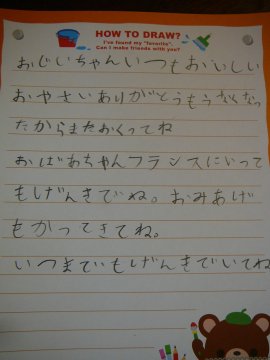 HOW TO DRAW?
I've found my "favorite".
Can I make friends with you?
おじいちゃんいつもおいしい
おやさいありがとうもうなくなっ
たからまたおくってね
おばあちゃんフランスにいって
もげんきでね。おみあげ
もかってきてね。
いつまでもげんきでいてね